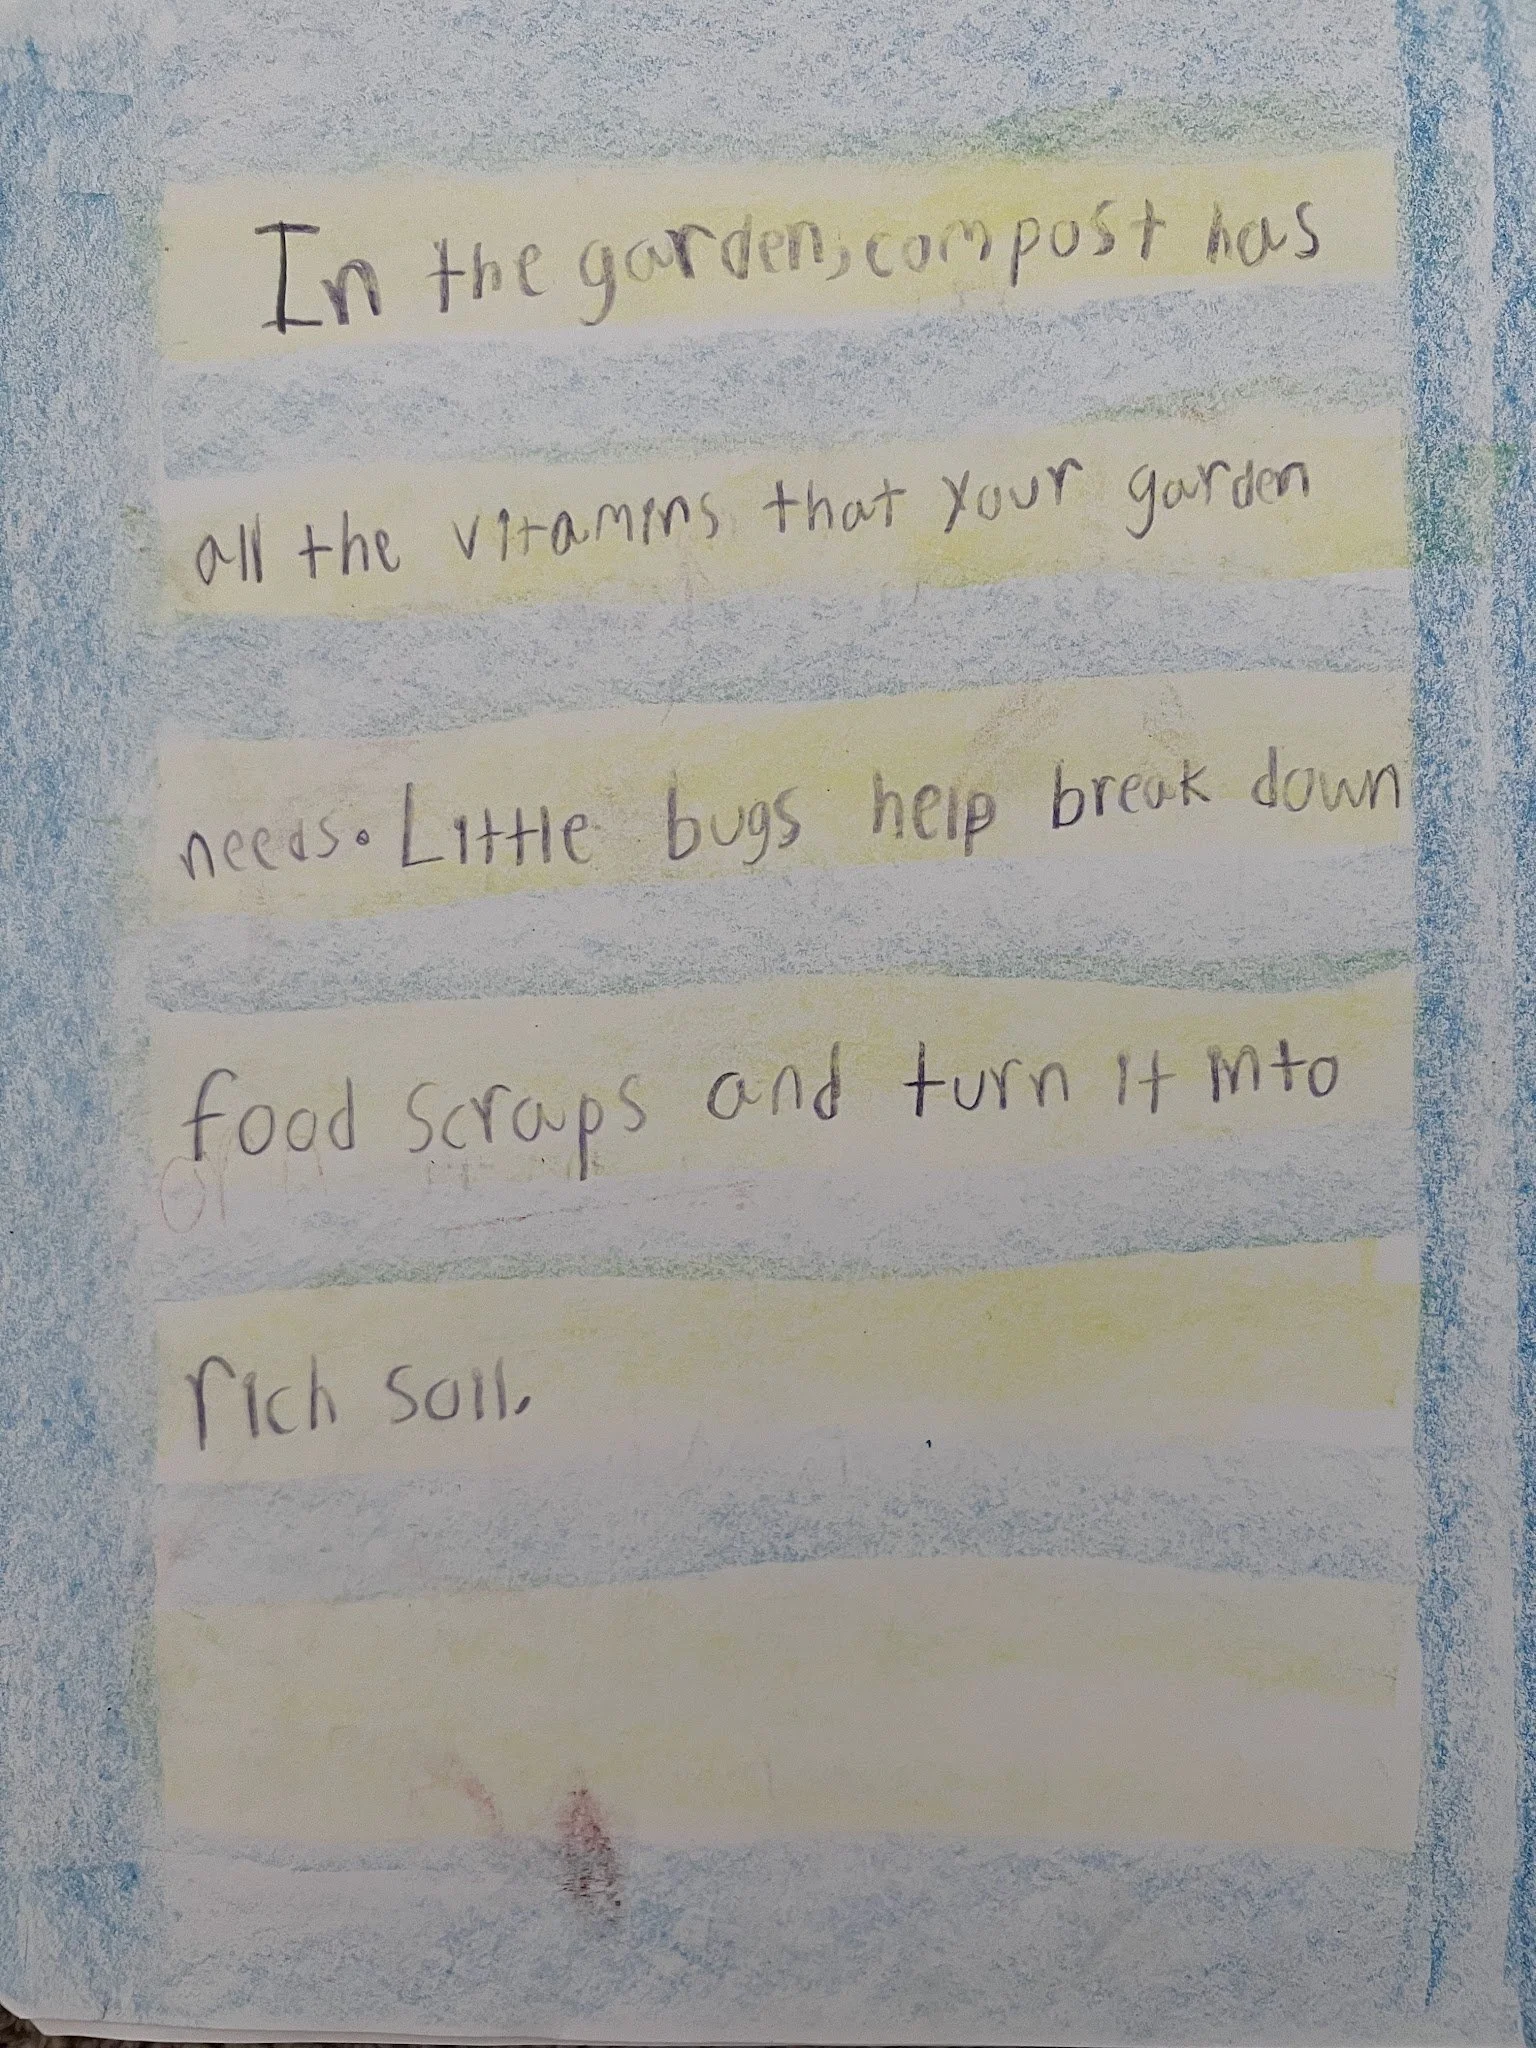 In the garden, compost has
all the vitamins that your garden
needs. Little bugs help break down
food scraps and turn it into
rich soil.